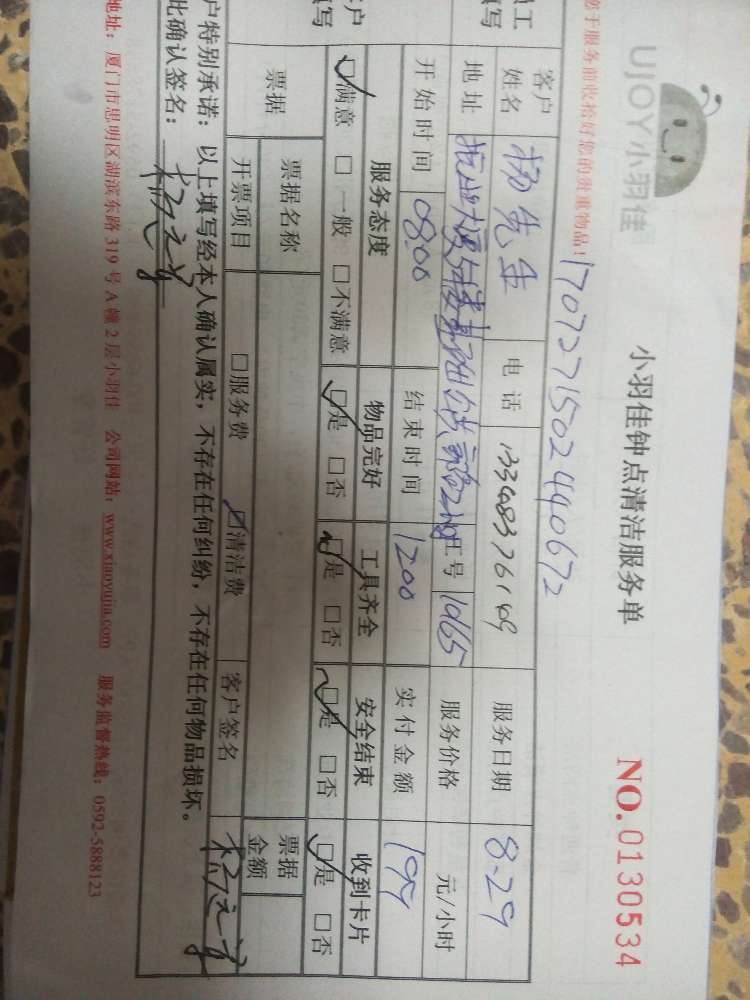 UJOY小羽佳
小羽佳钟点清洁服务单
NO.0130534
于服务前收拾好您的贵重物品!
1707271502440672
员工 填写
客户姓名 杨先生 电话 服务日期 8.29
地址 工号 服务价格 元/小时
开始时间 08:00 结束时间 1200 实付金额
客户 填写
服务态度 物品完好 工具齐全 安全结束 收到卡片
☑满意 □一般 □不满意 ☑是 □否 ☑是 □否 ☑是 □否 ☑是 □否
票据 票据名称 票据金额
开票项目 □服务费 ☑清洁费 客户签名
户特别承诺:以上填写经本人确认属实,不存在任何纠纷,不存在任何物品损坏。
此确认签名:
地址:厦门市思明区湖滨东路 319 号 A 幢 2 层小羽佳 公司网站:www.xiaoyujia.com 服务监督热线:0592-5888123